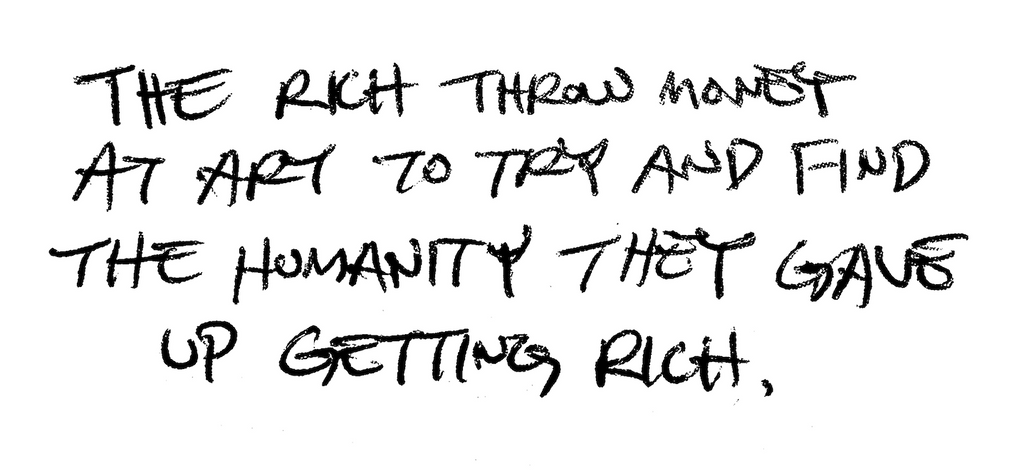 THE RICH THROW MONEY
AT ART TO TRY AND FIND
THE HUMANITY THEY GAVE
UP GETTING RICH.